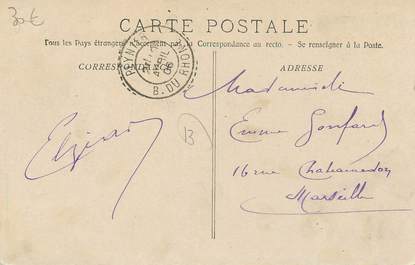 30€
CARTE POSTALE
Tous les Pays étrangers n'acceptent pas la Correspondance au recto. — Se renseigner à la Poste.
CORRESPONDANCE
ADRESSE
AVRIL
B. DU RHONE
Mademoiselle
Emma
13
16 rue
Marseille